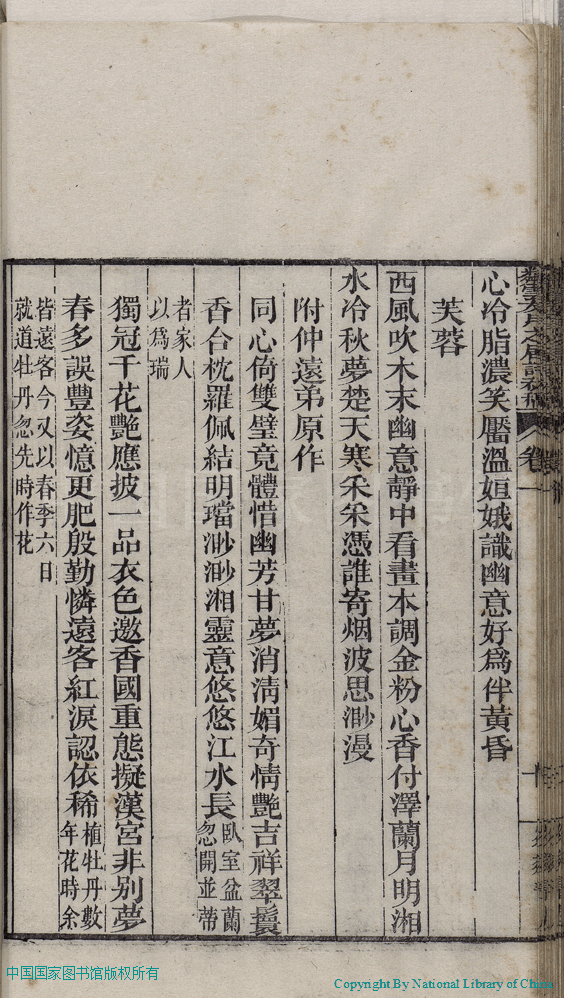 心冷脂濃笑靨溫姮娥識幽意好爲伴黃昏
芙蓉
西風吹木末幽意靜中看畫本調金粉心香付澤蘭月明湘
水冷秋夢楚天寒采采憑誰寄烟波思渺漫
附仲遠弟原作
同心倚雙璧竟體惜幽芳甘夢消淸媚奇情艷吉祥翠鬟
香合枕羅佩結明璫渺渺湘靈意悠悠江水長臥室盆蘭忽開並蒂
者家人以爲瑞
獨冠千花艷應披一品衣色邀香國重態擬漢宮非別夢
春多誤豐姿憶更肥殷勤憐遠客紅淚認依稀植牡丹數年花時余
皆遠客今又以春季六日就道牡丹忽先時作花
卷一
十
中国国家图书馆版权所有
Copyright By National Library of China